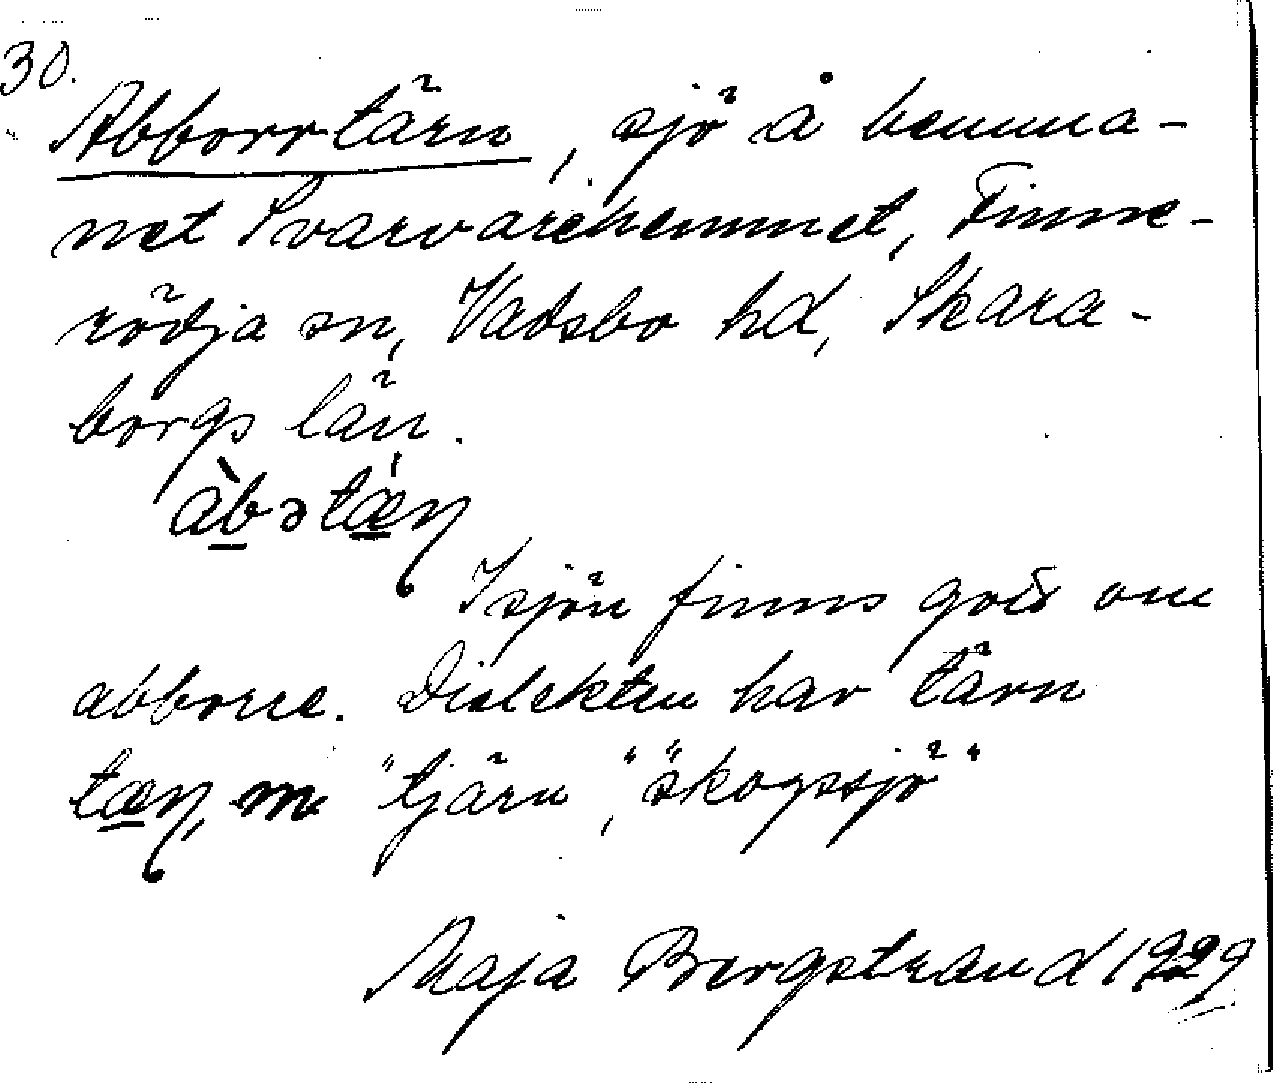 30.
Abborrtärn, sjö å hemma-
net Svarvarehemmet, Finne-
rödja sn, Vadsbo hd, Skara-
borgs län.
àbətæɳ
I sjön finns gott om
abborre. Dialekten har tärn
tæɳ, m "tjärn", "skogssjö"
Maja Bergstrand 1929